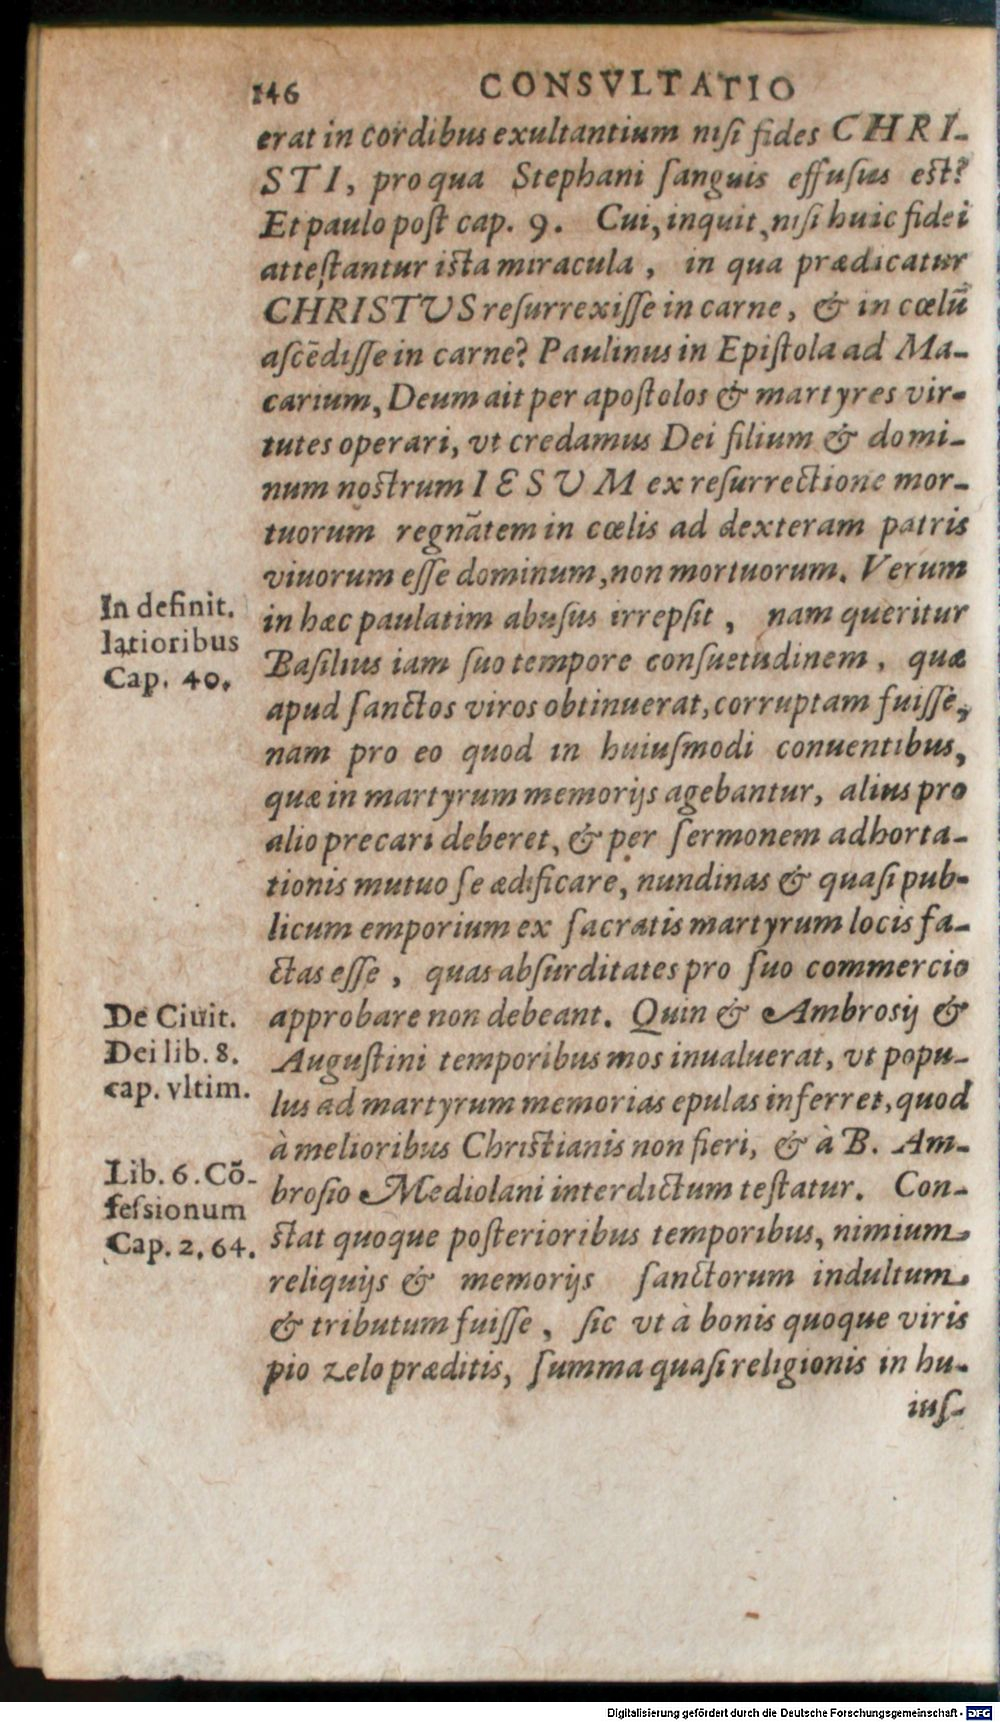 146 CONSVLTATIO
erat in cordibus exultantium nisi fides CHRI-
STI, pro qua Stephani ſanguis effuſus est?
Et paulo poſt cap. 9. Cui, inquit, niſi huic fidei
atteſtantur ista miracula, in qua prædicatur
CHRISTUS reſurrexiſſe in carne, & in cœlū
aſcēdiſſe in carne? Paulinus in Epiſtola ad Ma-
carium, Deum ait per apoſtolos & martyres vir-
tutes operari, vt credamus Dei filium & domi-
num nostrum IESUM ex reſurrectione mor-
tuorum regnātem in cœlis ad dexteram patris
viuorum eſſe dominum, non mortuorum. Verum
in hæc paulatim abuſus irrepſit, nam queritur
Baſilius iam ſuo tempore conſuetudinem, quæ
apud ſanctos viros obtinuerat, corruptam fuiſſe,
nam pro eo quod in huiuſmodi conuentibus,
quæ in martyrum memorijs agebantur, alius pro
alio precari deberet, & per ſermonem adhorta-
tionis mutuo ſe ædificare, nundinas & quaſi pub-
licum emporium ex ſacratis martyrum locis fa-
ctas eſſe, quas abſurditates pro ſuo commercio
approbare non debeant. Quin & Ambrosij &
Auguſtini temporibus mos inualuerat, vt popu-
lus ad martyrum memorias epulas inferret, quod
à melioribus Christianis non fieri, & à B. Am-
broſio Mediolani interdictum teſtatur. Con-
stat quoque poſterioribus temporibus, nimium
reliquijs & memorijs ſanctorum indultum
& tributum fuiſſe, ſic vt à bonis quoque viris
pio zelo præditis, ſumma quaſi religionis in hu-
iuſ-
In definit.
latioribus
Cap. 40.
De Ciuit.
Dei lib. 8.
cap. vltim.
Lib. 6. Cō-
feſsionum
Cap. 2, 64.
Digitalisierung gefördert durch die Deutsche Forschungsgemeinschaft - DFG